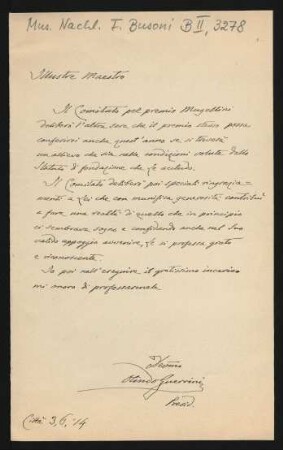 Mus. Nachl. F. Busoni B II, 3278
Illustre Maestro
Il Comitato pel premio Mugellini
deliberò l'altra sera che il premio stesso possa
conferirsi anche quest'anno se si troverà
un allievo che sia nelle condizioni volute dallo
Statuto di fondazione che Le accludo.
Il Comitato deliberò poi speciali ringrazia-
menti a Lei che con munifica generosità contribuì
a fare una realtà di quello che in principio
ci sembrava sogno e confidando anche nel Suo
valido appoggio avvenire, Le si professa grato
e riconoscente.
Io poi nell'eseguire il gratissimo incarico
mi onoro di professarmele
Devmo
Olindo Guerrini
Presid.
3, 6, '14